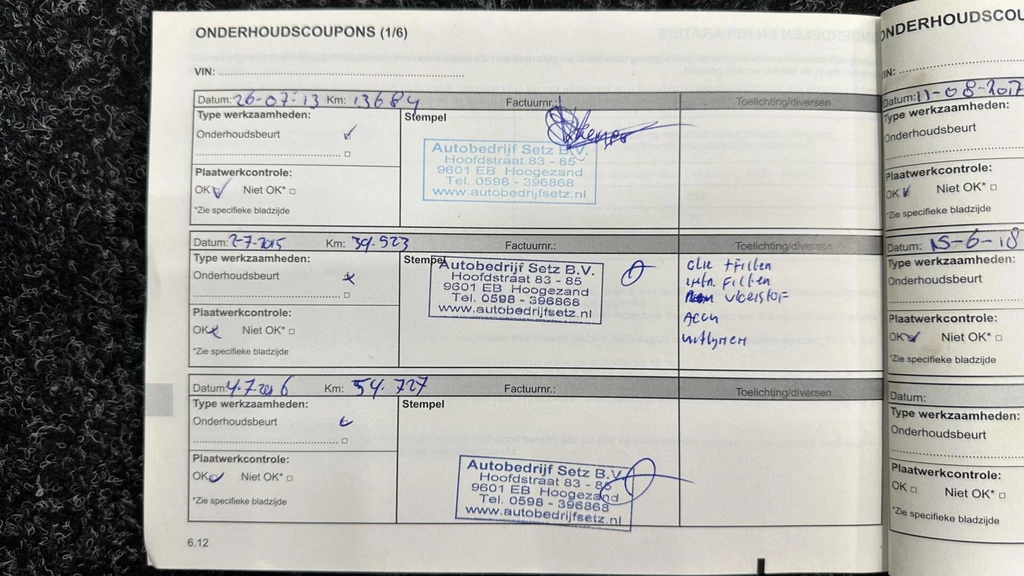 ONDERHOUDSCOUPONS (1/6)
VIN:
Datum: 26-07-13 Km: 13684 Factuurnr.: Toelichting/diversen
Type werkzaamheden:
Stempel
Onderhoudsbeurt
Autobedrijf Setz B.V.
Hoofdstraat 83 - 85
9601 EB Hoogezand
Tel. 0598 - 396868
www.autobedrijfsetz.nl
Plaatwerkcontrole:
OK Niet OK*
*Zie specifieke bladzijde
Datum: 2-7-2015 Km: 39.523 Factuurnr.: Toelichting/diversen
Type werkzaamheden:
Stempel
Onderhoudsbeurt
Autobedrijf Setz B.V.
Hoofdstraat 83 - 85
9601 EB Hoogezand
Tel. 0598 - 396868
www.autobedrijfsetz.nl
olie + Filter
Filter
vloeistof
Accu
uitlijnen
Plaatwerkcontrole:
OK Niet OK*
*Zie specifieke bladzijde
Datum: 4-7-2016 Km: 54.727 Factuurnr.: Toelichting/diversen
Type werkzaamheden:
Stempel
Onderhoudsbeurt
Plaatwerkcontrole:
OK Niet OK*
*Zie specifieke bladzijde
Autobedrijf Setz B.V.
Hoofdstraat 83 - 85
9601 EB Hoogezand
Tel. 0598 - 396868
www.autobedrijfsetz.nl
6.12
ONDERHOUDSCOU
VIN:
Datum: 11-08-2017
Type werkzaamheden:
Onderhoudsbeurt
Plaatwerkcontrole:
OK Niet OK*
*Zie specifieke bladzijde
Datum: 15-6-18
Type werkzaamheden:
Onderhoudsbeurt
Plaatwerkcontrole:
OK Niet OK*
*Zie specifieke bladzijde
Datum:
Type werkzaamheden:
Onderhoudsbeurt
Plaatwerkcontrole:
OK Niet OK*
*Zie specifieke bladzijde